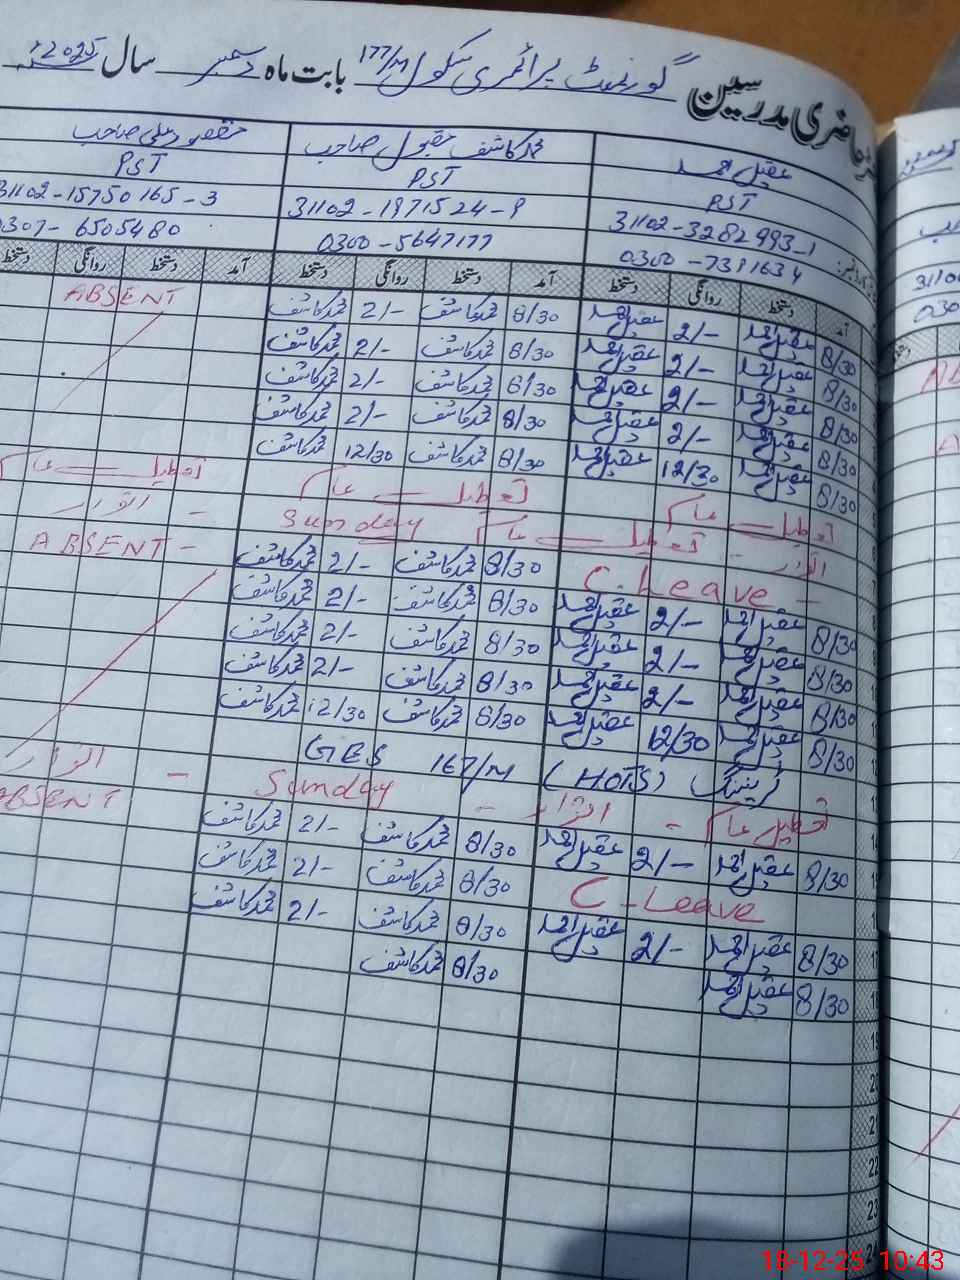 حاضری مدرسین گورنمنٹ پرائمری سکول 177/M بابت ماہ دسمبر سال 2025
عقیل احمد محمد کاشف مقبول صاحب مقصود علی صاحب
PST PST PST
31102-3282993-1 31102-1971524-9 31102-15750165-3
0300-7391634 0300-5647177 0307-6505480
آمد دستخط روانگی دستخط آمد دستخط روانگی دستخط آمد دستخط روانگی دستخط
8/30 عقیل احمد 2/- عقیل احمد 8/30 محمد کاشف 2/- محمد کاشف ABSENT
8/30 عقیل احمد 2/- عقیل احمد 8/30 محمد کاشف 2/- محمد کاشف
8/30 عقیل احمد 2/- عقیل احمد 8/30 محمد کاشف 2/- محمد کاشف
8/30 عقیل احمد 2/- عقیل احمد 8/30 محمد کاشف 2/- محمد کاشف
8/30 عقیل احمد 12/30 عقیل احمد 8/30 محمد کاشف 12/30 محمد کاشف
تعطیل عام تعطیل عام تعطیل عام
اتوار - تعطیل عام Sunday - اتوار
C. Leave - 8/30 محمد کاشف 2/- محمد کاشف ABSENT -
8/30 عقیل احمد 2/- عقیل احمد 8/30 محمد کاشف 2/- محمد کاشف
8/30 عقیل احمد 2/- عقیل احمد 8/30 محمد کاشف 2/- محمد کاشف
8/30 عقیل احمد 2/- عقیل احمد 8/30 محمد کاشف 2/- محمد کاشف
8/30 عقیل احمد 12/30 عقیل احمد 8/30 محمد کاشف 12/30 محمد کاشف
ٹریننگ (HOTS) GES 167/M
تعطیل عام - اتوار - Sunday - اتوار
8/30 عقیل احمد 2/- عقیل احمد 8/30 محمد کاشف 2/- محمد کاشف ABSENT
C - Leave 8/30 محمد کاشف 2/- محمد کاشف
8/30 عقیل احمد 2/- عقیل احمد 8/30 محمد کاشف 2/- محمد کاشف
8/30 عقیل احمد 8/30 محمد کاشف
22
23
18-12-25 10:43